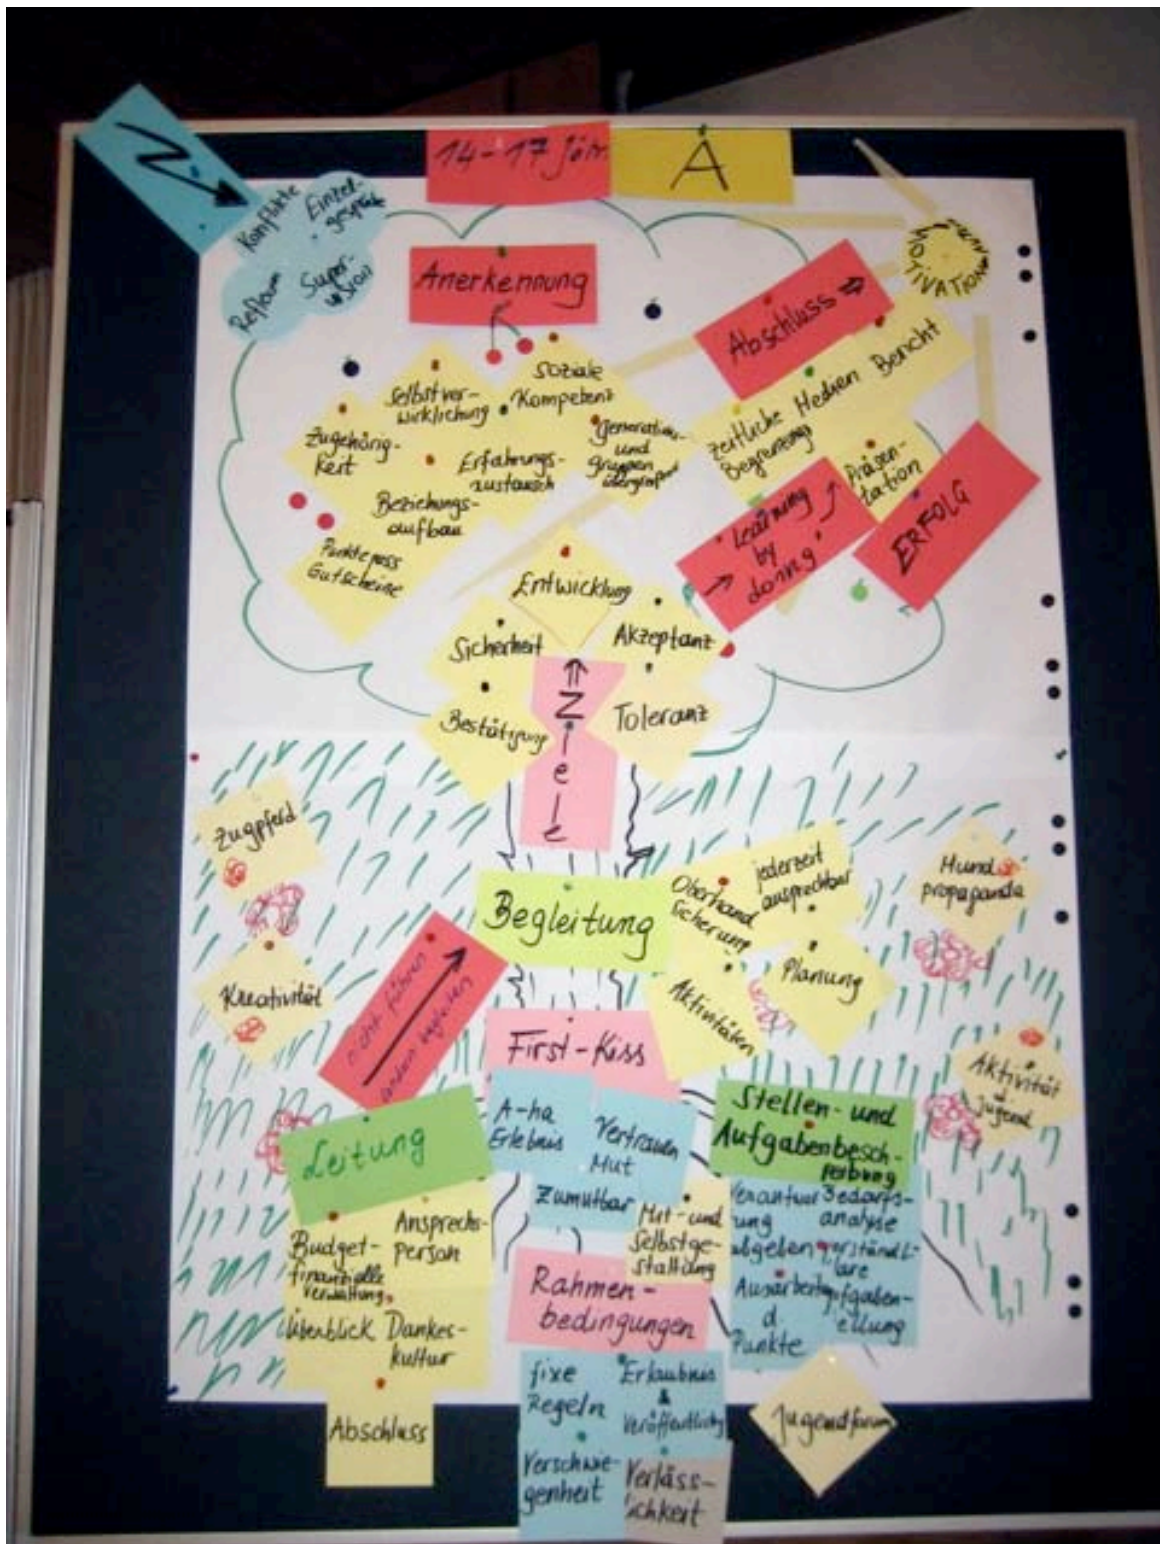 14-17 Jör.
A
Konflikte
Einzel-
gespräche
Reflexion
Super-
vision
MOTIVATION
Anerkennung
Abschluss ⇒
Zeitliche
Begrenzung
Medien
Bericht
Präsen-
tation
→ Learning
by
doing
ERFOLG
Selbstver-
wirklichung
Soziale
Kompetenz
Zugehörig-
keit
Erfahrungs-
austausch
Generation-
und
gruppen
übergreifend
Beziehungs-
aufbau
Punktepass
Gutscheine
Entwicklung
Sicherheit
Akzeptanz
Bestätigung
Toleranz
Ziele
Zugpferd
Kreativität
Begleitung
nicht führen
sondern begleiten
Oberhand
sicherung
jederzeit
ansprechbar
Aktivitäten
Planung
Mund
propaganda
Aktivität
d.
Jugend
First-Kiss
A-ha
Erlebnis
Vertrauen
Mut
Zumutbar
Mit- und
Selbstge-
staltung
Leitung
Ansprechs-
person
Budget-
finanzielle
Verwaltung
Überblick
Dankes-
kultur
Abschluss
Stellen- und
Aufgabenbesch-
reibung
Verantwor
tung
abgeben
Bedarfs-
analyse
verständl-
are
Aufgaben-
ellung
Ausarbeitung
d.
Punkte
Rahmen-
bedingungen
fixe
Regeln
Erlaubnis
&
Veröffentlichg
Verschwie-
genheit
Verläss-
lichkeit
Jugendforum